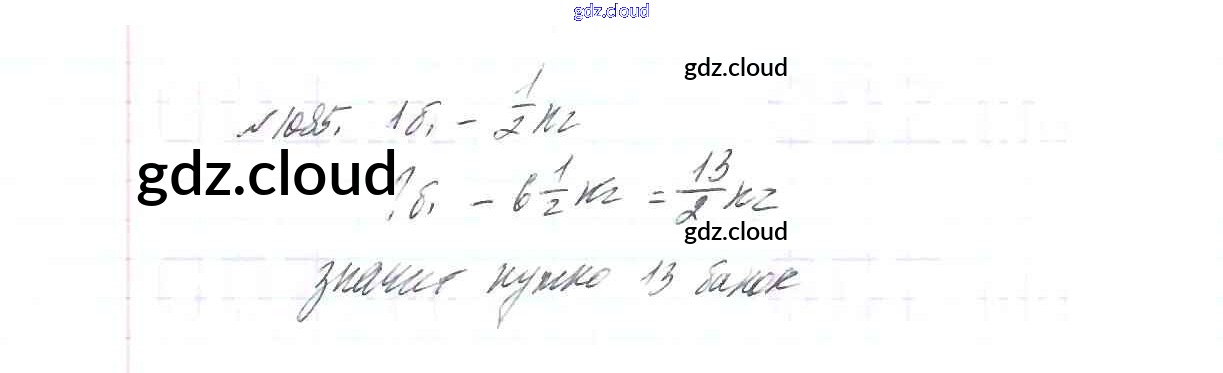 gdz.cloud
gdz.cloud
№1085. 1б. – 1/2 кг
gdz.cloud
?б. – 6 1/2 кг = 13/2 кг
gdz.cloud
значит нужно 13 банок